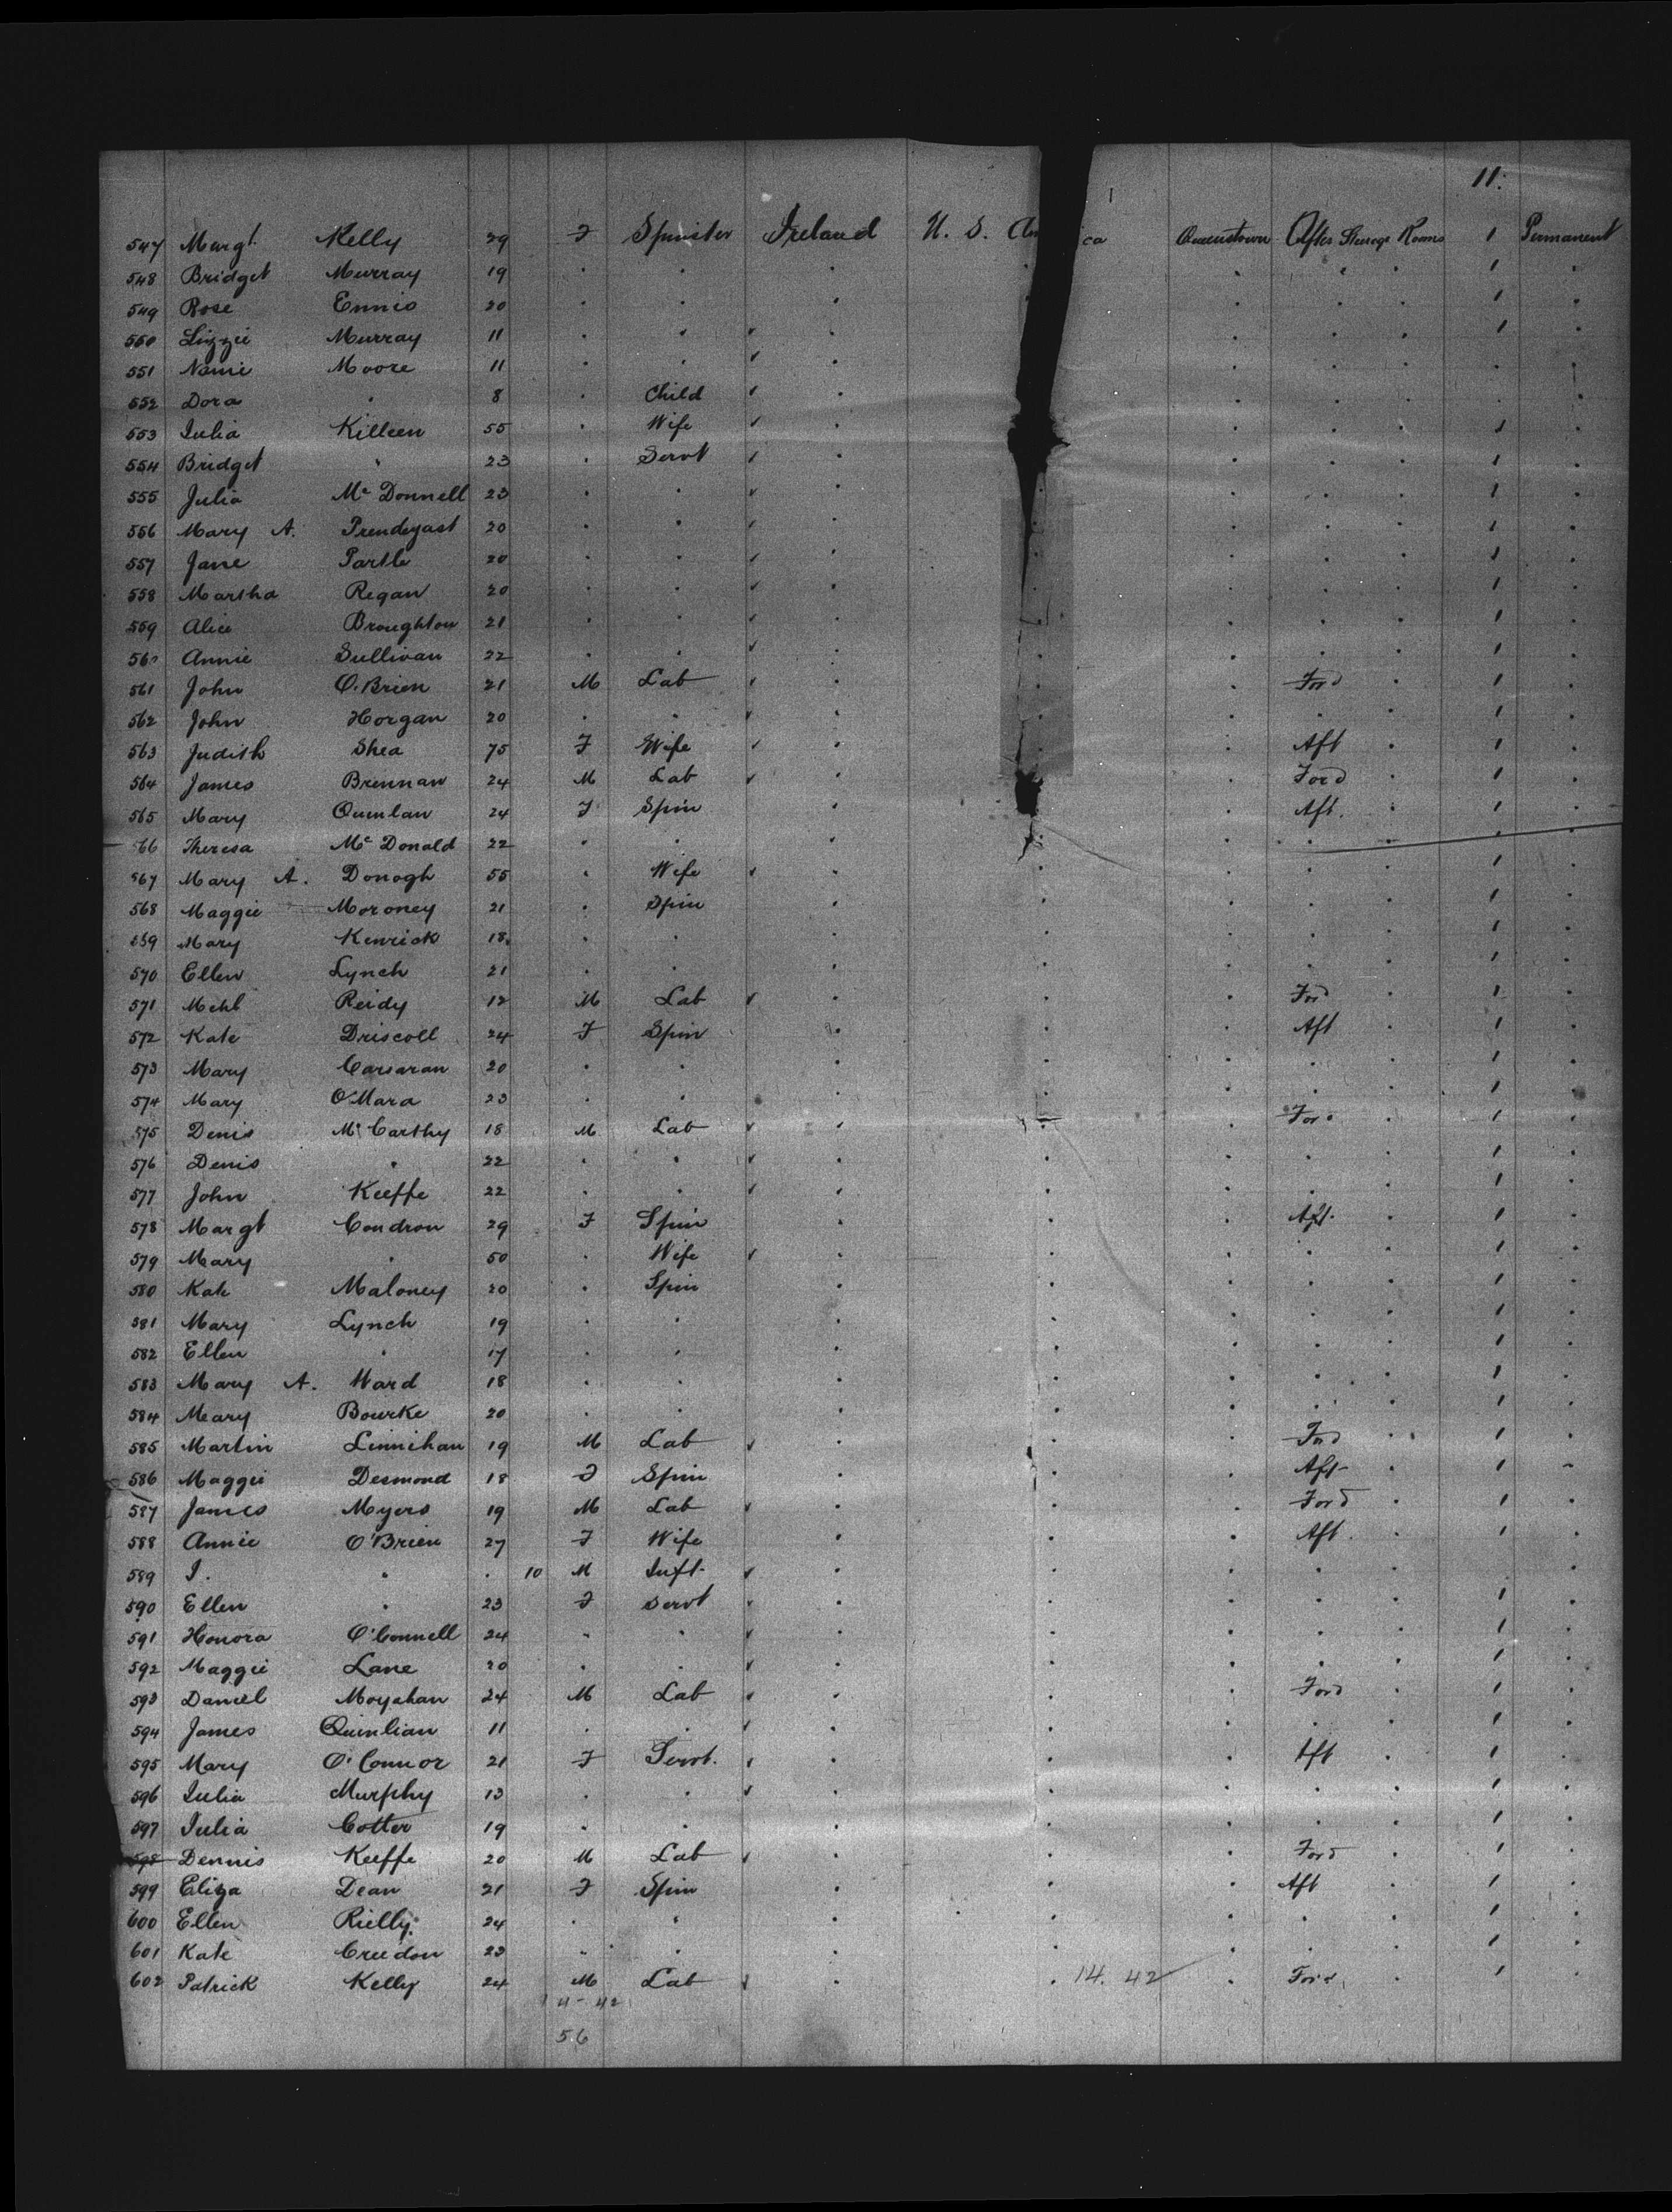 11.
547 Margt. Kelly 29 F Spinster Ireland U. S. Am ca Queenstown After Steerage Rooms 1 Permanent
548 Bridget Murray 19 " " " " " " " " 1 "
549 Rose Ennis 20 " " " " " " " " 1 "
550 Lizzie Murray 11 " " " " " " " " 1 "
551 Nannie Moore 11 " " " " " " " " " "
552 Dora " 8 " Child " " " " " " " "
553 Julia Killeen 55 " Wife " " " " " " 1 "
554 Bridget " 23 " Servt " " " " " " 1 "
555 Julia Mc Donnell 23 " " " " " " " " 1 "
556 Mary A. Prendegast 20 " " " " " " " " 1 "
557 Jane Partle 20 " " " " " " " " 1 "
558 Martha Regan 20 " " " " " " " " 1 "
559 Alice Broughton 21 " " " " " " " " 1 "
560 Annie Sullivan 22 " " " " " " " " 1 "
561 John O.Brien 21 M Lab " " " Ford " 1 "
562 John Horgan 20 " " " " " " " " 1 "
563 Judith Shea 75 F Wife " " " Aft " 1 "
564 James Brennan 24 M Lab " " " Ford " 1 "
565 Mary Quinlan 24 F Spin " " " Aft. " 1 "
566 Theresa Mc Donald 22 " " " " " " " " 1 "
567 Mary A. Donogh 55 " Wife " " " " " " 1 "
568 Maggie Moroney 21 " Spin " " " " " " 1 "
569 Mary Kenrick 18 " " " " " " " " 1 "
570 Ellen Lynch 21 " " " " " " " " 1 "
571 Mchl Reidy 12 M Lab " " " Ford " 1 "
572 Kate Driscoll 24 F Spin " " " Aft " 1 "
573 Mary Carsaran 20 " " " " " " " " 1 "
574 Mary O'Mara 23 " " " " " " " " 1 "
575 Denis Mc Carthy 18 M Lab " " " Ford " 1 "
576 Denis " 22 " " " " " " " " 1 "
577 John Keeffe 22 " " " " " " " " 1 "
578 Margt Condron 29 F Spin " " " Aft. " 1 "
579 Mary " 50 " Wife " " " " " " 1 "
580 Kate Maloney 20 " Spin " " " " " " 1 "
581 Mary Lynch 19 " " " " " " " " 1 "
582 Ellen " 17 " " " " " " " " 1 "
583 Mary A. Ward 18 " " " " " " " " 1 "
584 Mary Bourke 20 " " " " " " " " 1 "
585 Martin Linnihan 19 M Lab " " " Ford " 1 "
586 Maggie Desmond 18 F Spin " " " Aft " 1 "
587 James Myers 19 M Lab " " " Ford " 1 "
588 Annie O'Brien 27 F Wife " " " Aft. " 1 "
589 J. " " 10 M Inft. " " " " " " "
590 Ellen " 23 F Servt " " " " " " 1 "
591 Honora O'Connell 24 " " " " " " " " 1 "
592 Maggie Lane 20 " " " " " " " " 1 "
593 Daniel Moynahan 24 M Lab " " " Ford " 1 "
594 James Quinlian 11 " " " " " " " " 1 "
595 Mary O'Connor 21 F Servt. " " " Aft " 1 "
596 Julia Murphy 13 " " " " " " " " 1 "
597 Julia Cotter 19 " " " " " " " " 1 "
598 Dennis Keeffe 20 M Lab " " " Ford " 1 "
599 Eliza Dean 21 F Spin " " " Aft " 1 "
600 Ellen Rielly 24 " " " " " " " " 1 "
601 Kate Creedon 23 " " " " " " " " 1 "
602 Patrick Kelly 24 M Lab " " 14. 42 " Ford " 1 "
14 - 42
56